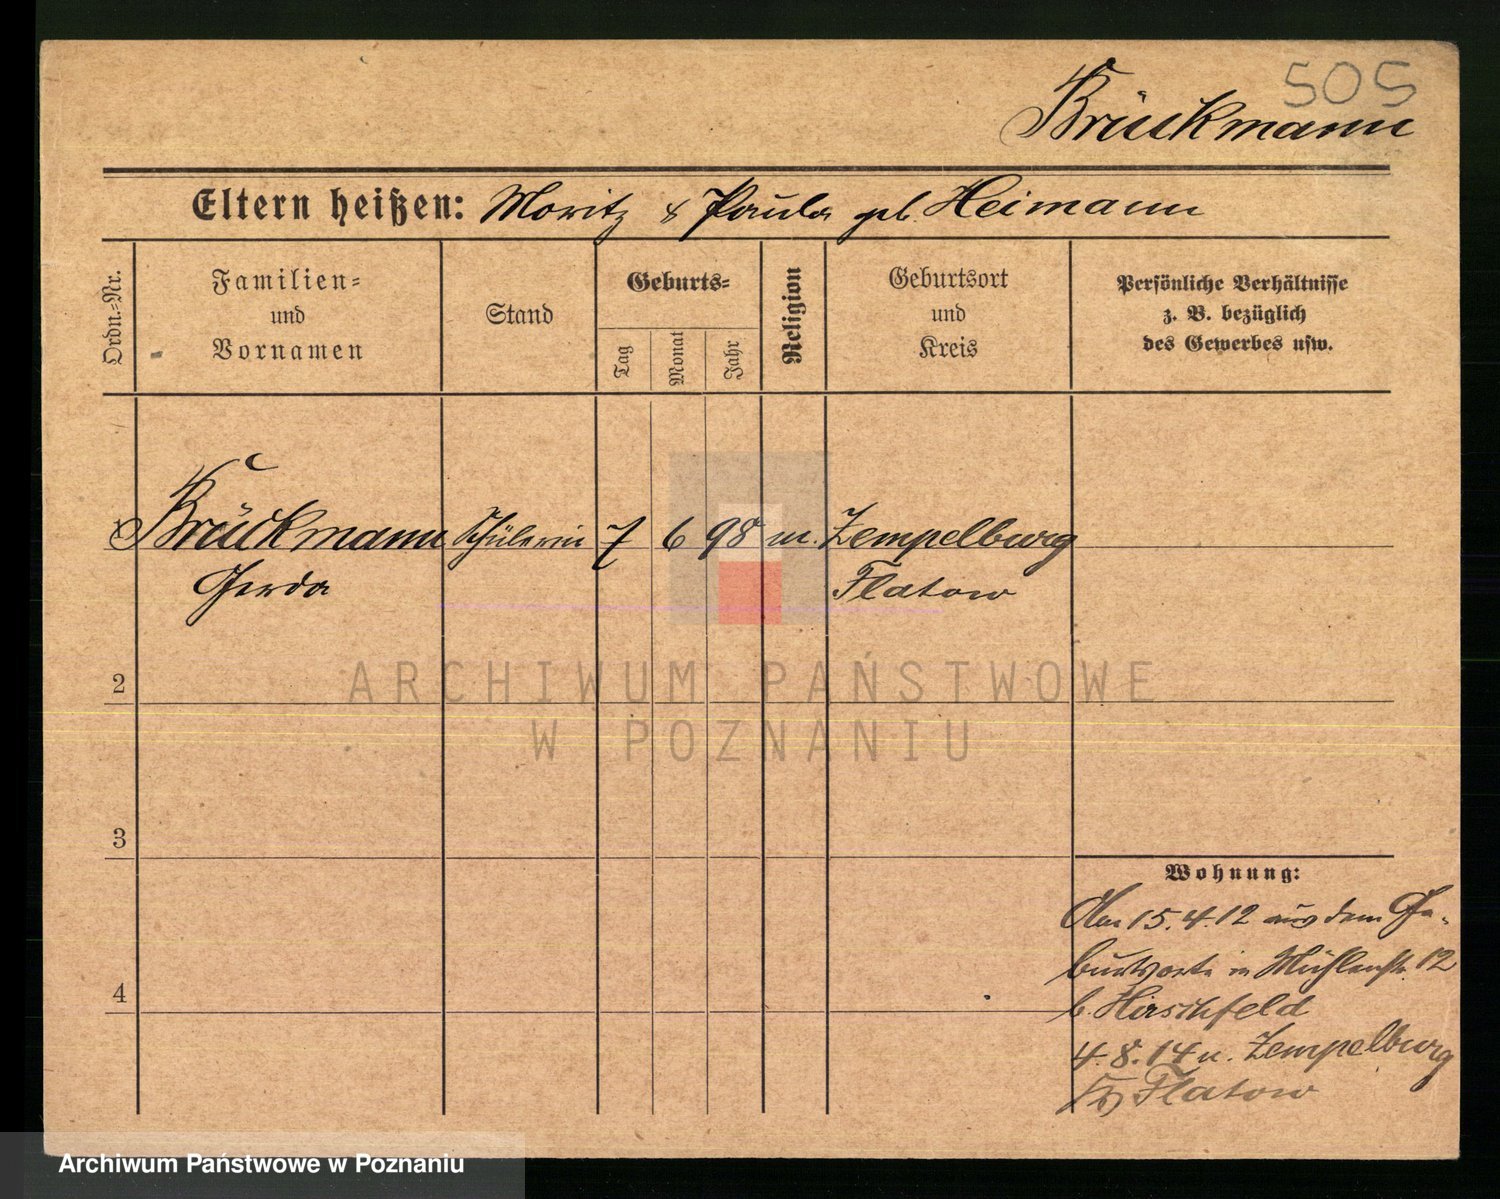 505
Brückmann
Eltern heißen: Moritz & Paula geb. Heimann
Ordn.-Nr.
Familien-
und
Vornamen
Stand
Geburts-
Tag
Monat
Jahr
Religion
Geburtsort
und
Kreis
Persönliche Verhältnisse
z. B. bezüglich
des Gewerbes usw.
Brückmann Schülerin 7 6 98 m. Zempelburg
Gerda Flatow
2
ARCHIWUM PAŃSTWOWE
W POZNANIU
3
Wohnung:
Am 15.4.12 aus dem Ge-
burtsorte in Mühlenstr. 12
b. Hirschfeld
4
4.8.14 n. Zempelburg
Kr. Flatow
Archiwum Państwowe w Poznaniu